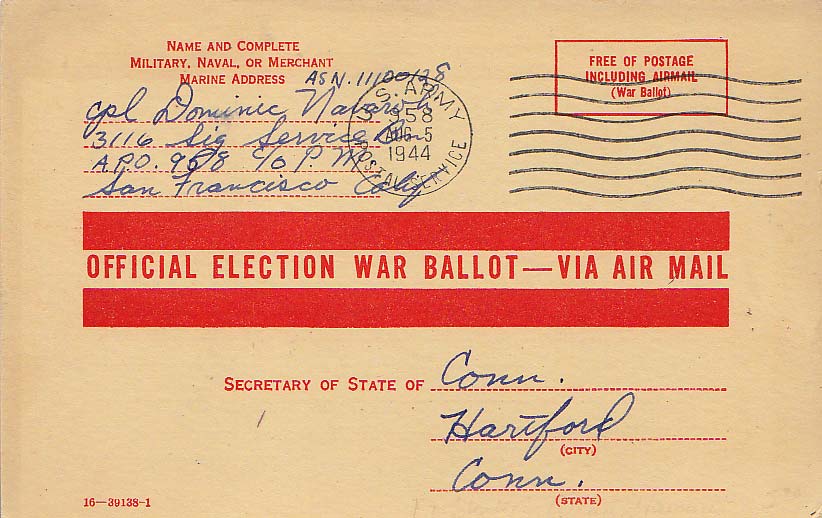 NAME AND COMPLETE
MILITARY, NAVAL, OR MERCHANT
MARINE ADDRESS
ASN. 11100128
Cpl Dominic
3116 Sig Service
A.P.O. 958 c/o P.M.
San Francisco Calif
U.S. ARMY
958
AUG 5
1944
POSTAL SERVICE
FREE OF POSTAGE
INCLUDING AIRMAIL
(War Ballot)
OFFICIAL ELECTION WAR BALLOT—VIA AIR MAIL
SECRETARY OF STATE OF Conn.
Hartford
(CITY)
Conn.
(STATE)
16—39138-1